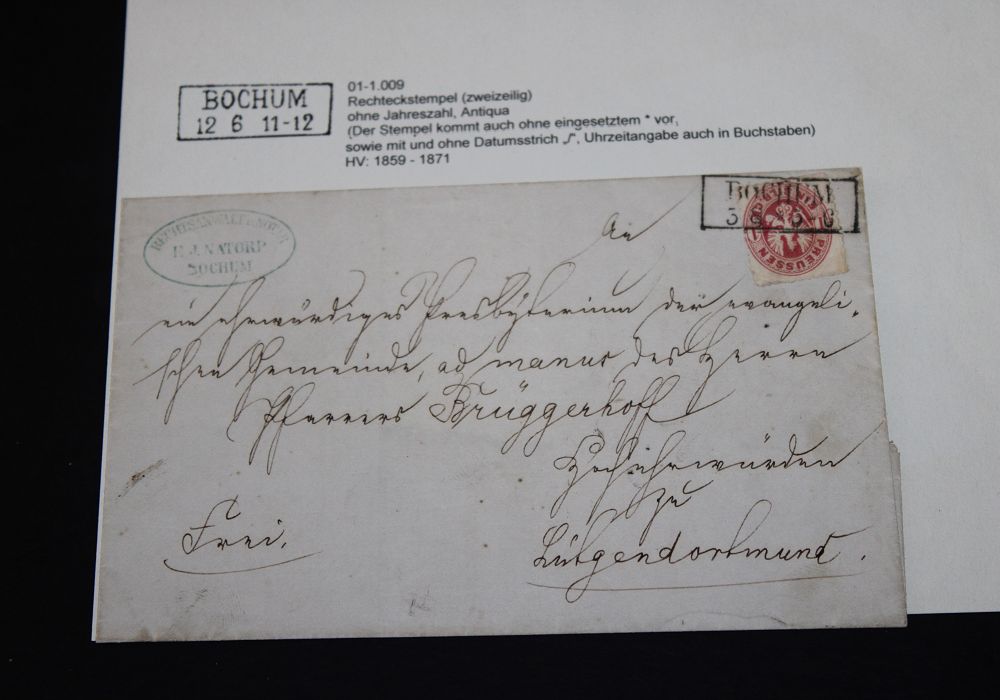 BOCHUM
12 6 11-12
01-1.009
Rechteckstempel (zweizeilig)
ohne Jahreszahl, Antiqua
(Der Stempel kommt auch ohne eingesetztem * vor,
sowie mit und ohne Datumsstrich „/“, Uhrzeitangabe auch in Buchstaben)
HV: 1859 - 1871
BOCHUM
PREUSSEN
RECHTSANWALT & NOTAR
NATORP
BOCHUM
An
ein ehrwürdiges Presbyterium der evangeli-
schen Gemeinde, ad manus des Herrn
Pfarrers Brüggerhoff
Hochehrwürden
zu
Lütgendortmund.
Frei.